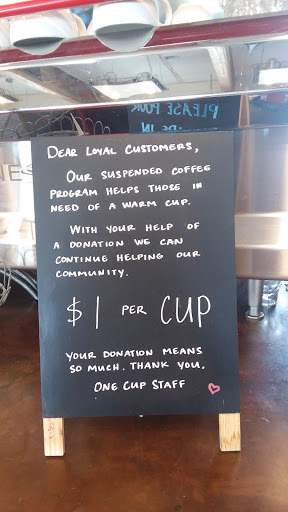 PLEASE POUR
DEAR LOYAL CUSTOMERS,
OUR SUSPENDED COFFEE
PROGRAM HELPS THOSE IN
NEED OF A WARM CUP.
WITH YOUR HELP OF
A DONATION WE CAN
CONTINUE HELPING OUR
COMMUNITY.
$1 PER CUP
YOUR DONATION MEANS
SO MUCH. THANK YOU,
ONE CUP STAFF